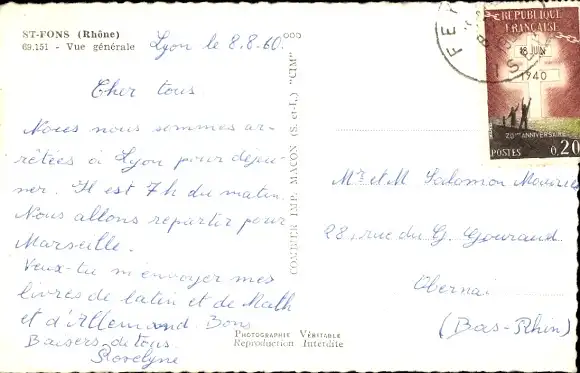 ST-FONS (Rhône)
69.151 - Vue générale
Lyon le 8.8.60.
Cher tous
Nous nous sommes ar-
rêtées à Lyon pour déjeu-
ner. Il est 7h du matin.
Nous allons repartir pour
Marseille.
Veux-tu m'envoyer mes
livres de latin et de Math
et d'Allemand. Bons
Baisers de tous
COMBIER IMP. MACON (S.-et-L.) "CIM"
PHOTOGRAPHIE VÉRITABLE
Reproduction Interdite
REPUBLIQUE
FRANÇAISE
18 JUIN
1940
20ème ANNIVERSAIRE
POSTES 0,20
Mr et M Salomon
28, rue du G. Gouraud
Obernai
(Bas-Rhin)